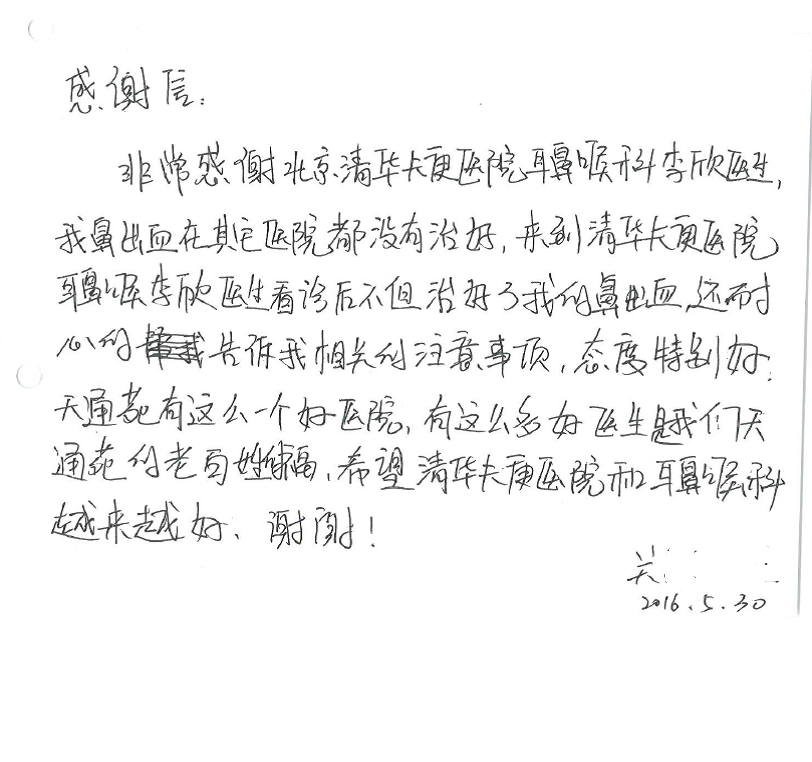 感谢信:
非常感谢北京清华长庚医院耳鼻喉科李欣医生,
我鼻出血在其它医院都没有治好,来到清华长庚医院
耳鼻喉李欣医生看诊后不但治好了我的鼻出血,还耐
心的告诉我相关的注意事项,态度特别好.
天通苑有这么一个好医院,有这么多好医生是我们天
通苑的老百姓的福,希望清华长庚医院和耳鼻喉科
越来越好、谢谢!
关
2016.5.30